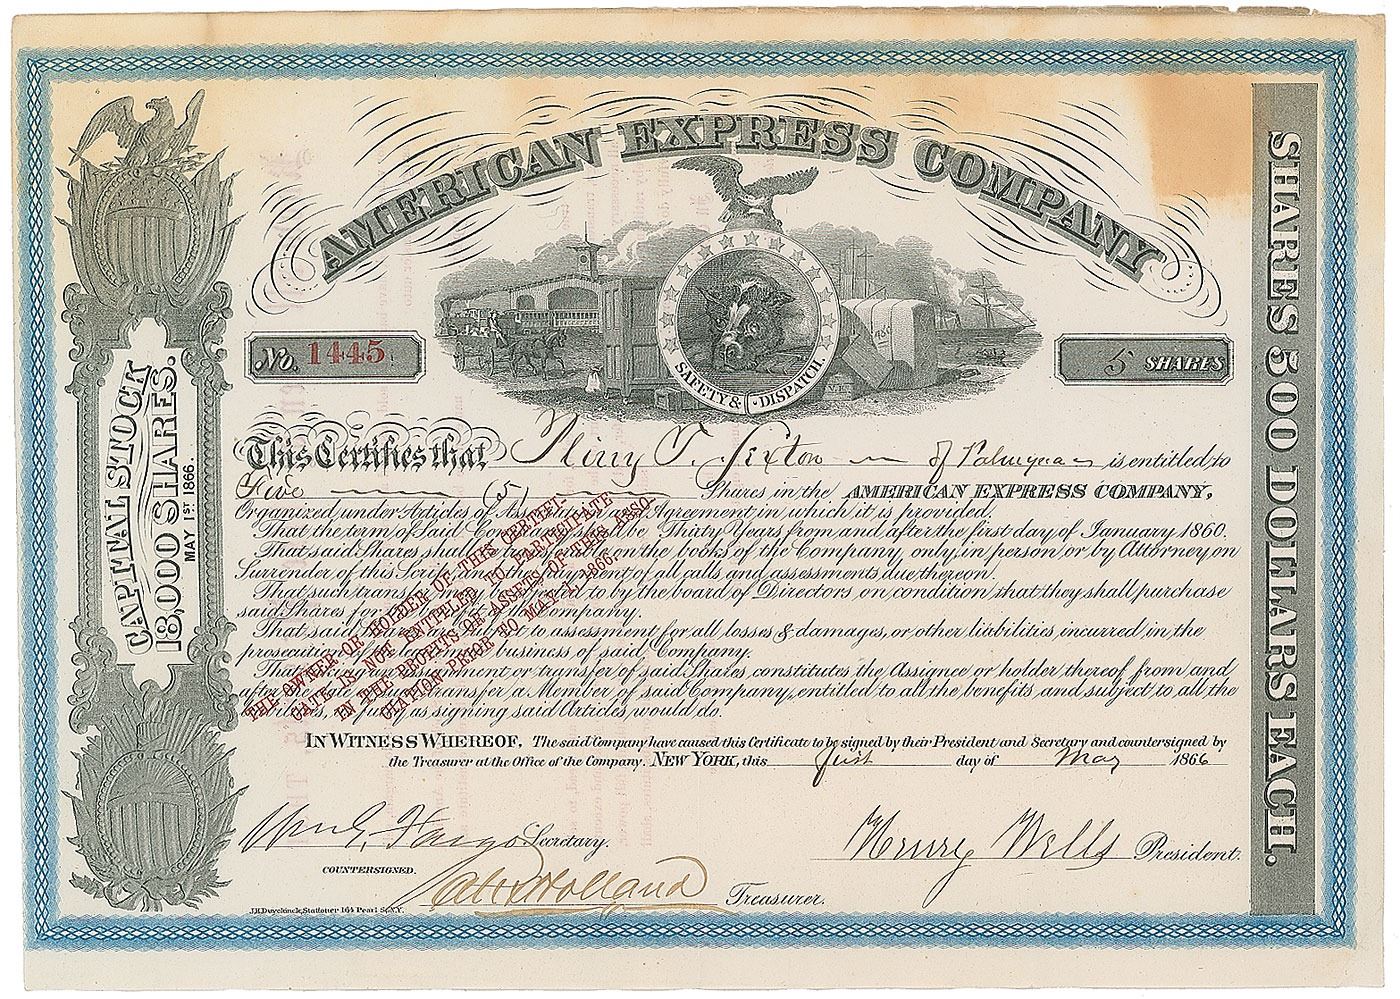 AMERICAN EXPRESS COMPANY
SHARES 500 DOLLARS EACH.
CAPITAL STOCK
18,000 SHARES.
MAY 1ST 1866.
No. 1445
SAFETY & DISPATCH.
5 SHARES
This Certifies that Pliny T. Sexton of Palmyra is entitled to
Five Shares in the AMERICAN EXPRESS COMPANY,
Organized under Articles of Association and Agreement in which it is provided.
That the term of Said Company shall be Thirty Years from and after the first day of January 1860.
That said Shares shall be transferable on the books of the Company, only, in person, or by Attorney on
Surrender of this Scrip, and the payment of all calls and assessments due thereon.
That such transfer may be to by the board of Directors on condition that they shall purchase
said Shares for the benefit of the Company.
That said Shares are subject to assessment for all losses & damages, or other liabilities incurred in the
prosecution of the business of said Company.
That assignment or transfer of said Shares constitutes the Assignee or holder thereof, from and
after the date of such transfer a Member of said Company, entitled to all the benefits and subject to all the
liabilities, as fully as signing said Articles, would do.
THE OWNER OR HOLDER OF THIS CERTIFI-
CATE IS NOT ENTITLED TO PARTICIPATE
IN THE PROFITS OR ASSETS OF THIS ASSO-
CIATION PRIOR TO MAY 1, 1866.
IN WITNESS WHEREOF, The said Company have caused this Certificate to be signed by their President and Secretary and countersigned by
the Treasurer at the Office of the Company. NEW YORK, this first day of May 1866
Wm G. Fargo Secretary.
Henry Wells President.
COUNTERSIGNED.
Alex Holland Treasurer.
J.H. Duyckinck, Stationer 164 Pearl St. N.Y.